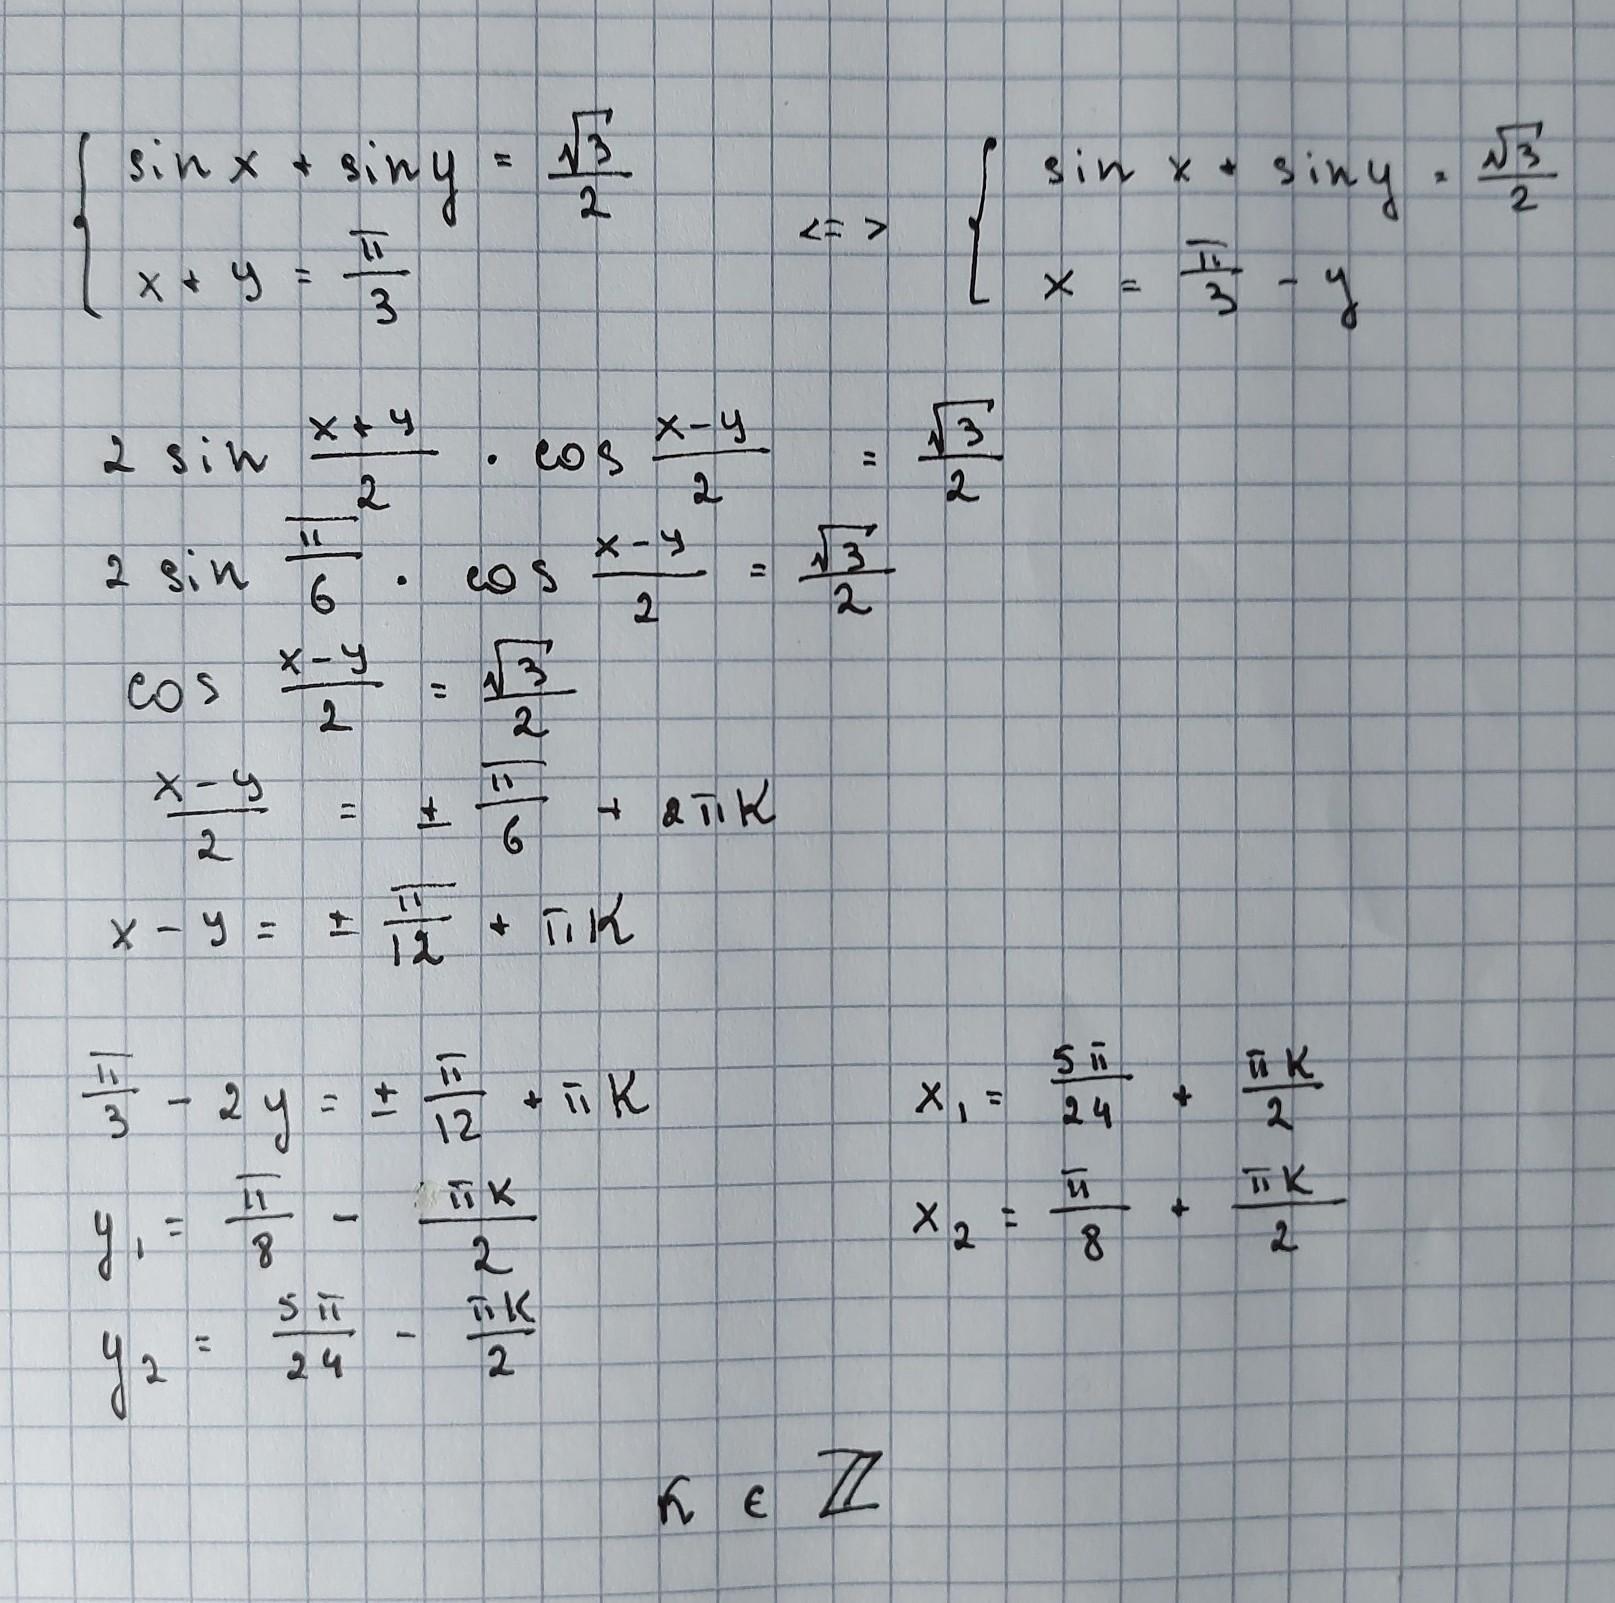 { sin x + sin y = √3/2 <=> { sin x + sin y = √3/2
x + y = π/3 x = π/3 - y
2 sin (x+y)/2 · cos (x-y)/2 = √3/2
2 sin π/6 · cos (x-y)/2 = √3/2
cos (x-y)/2 = √3/2
(x-y)/2 = ± π/6 + 2πK
x - y = ± π/12 + πK
π/3 - 2y = ± π/12 + πK x₁ = 5π/24 + πK/2
y₁ = π/8 - πK/2 x₂ = π/8 + πK/2
y₂ = 5π/24 - πK/2
K ∈ ℤ